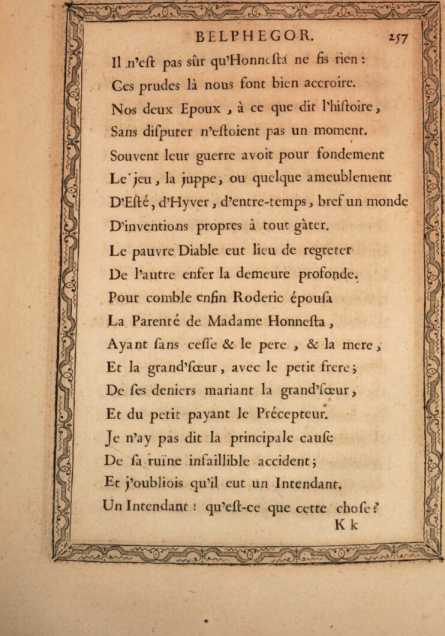 BELPHEGOR. 257
Il n'eſt pas sûr qu'Honneſta ne fis rien :
Ces prudes là nous font bien accroire.
Nos deux Epoux , à ce que dit l'hiſtoire ,
Sans diſputer n'eſtoient pas un moment.
Souvent leur guerre avoit pour fondement
Le jeu , la juppe, ou quelque ameublement
D'Eſté, d'Hyver, d'entre-temps, bref un monde
D'inventions propres à tout gâter.
Le pauvre Diable eut lieu de regreter
De l'autre enfer la demeure profonde.
Pour comble enfin Roderic épouſa
La Parenté de Madame Honneſta ,
Ayant ſans ceſſe & le pere , & la mere ,
Et la grand'ſœur, avec le petit frere ;
De ſes deniers mariant la grand'ſœur ,
Et du petit payant le Précepteur.
Je n'ay pas dit la principale cauſe
De ſa ruïne infaillible accident ;
Et j'oubliois qu'il eut un Intendant.
Un Intendant : qu'eſt-ce que cette choſe ?
K k